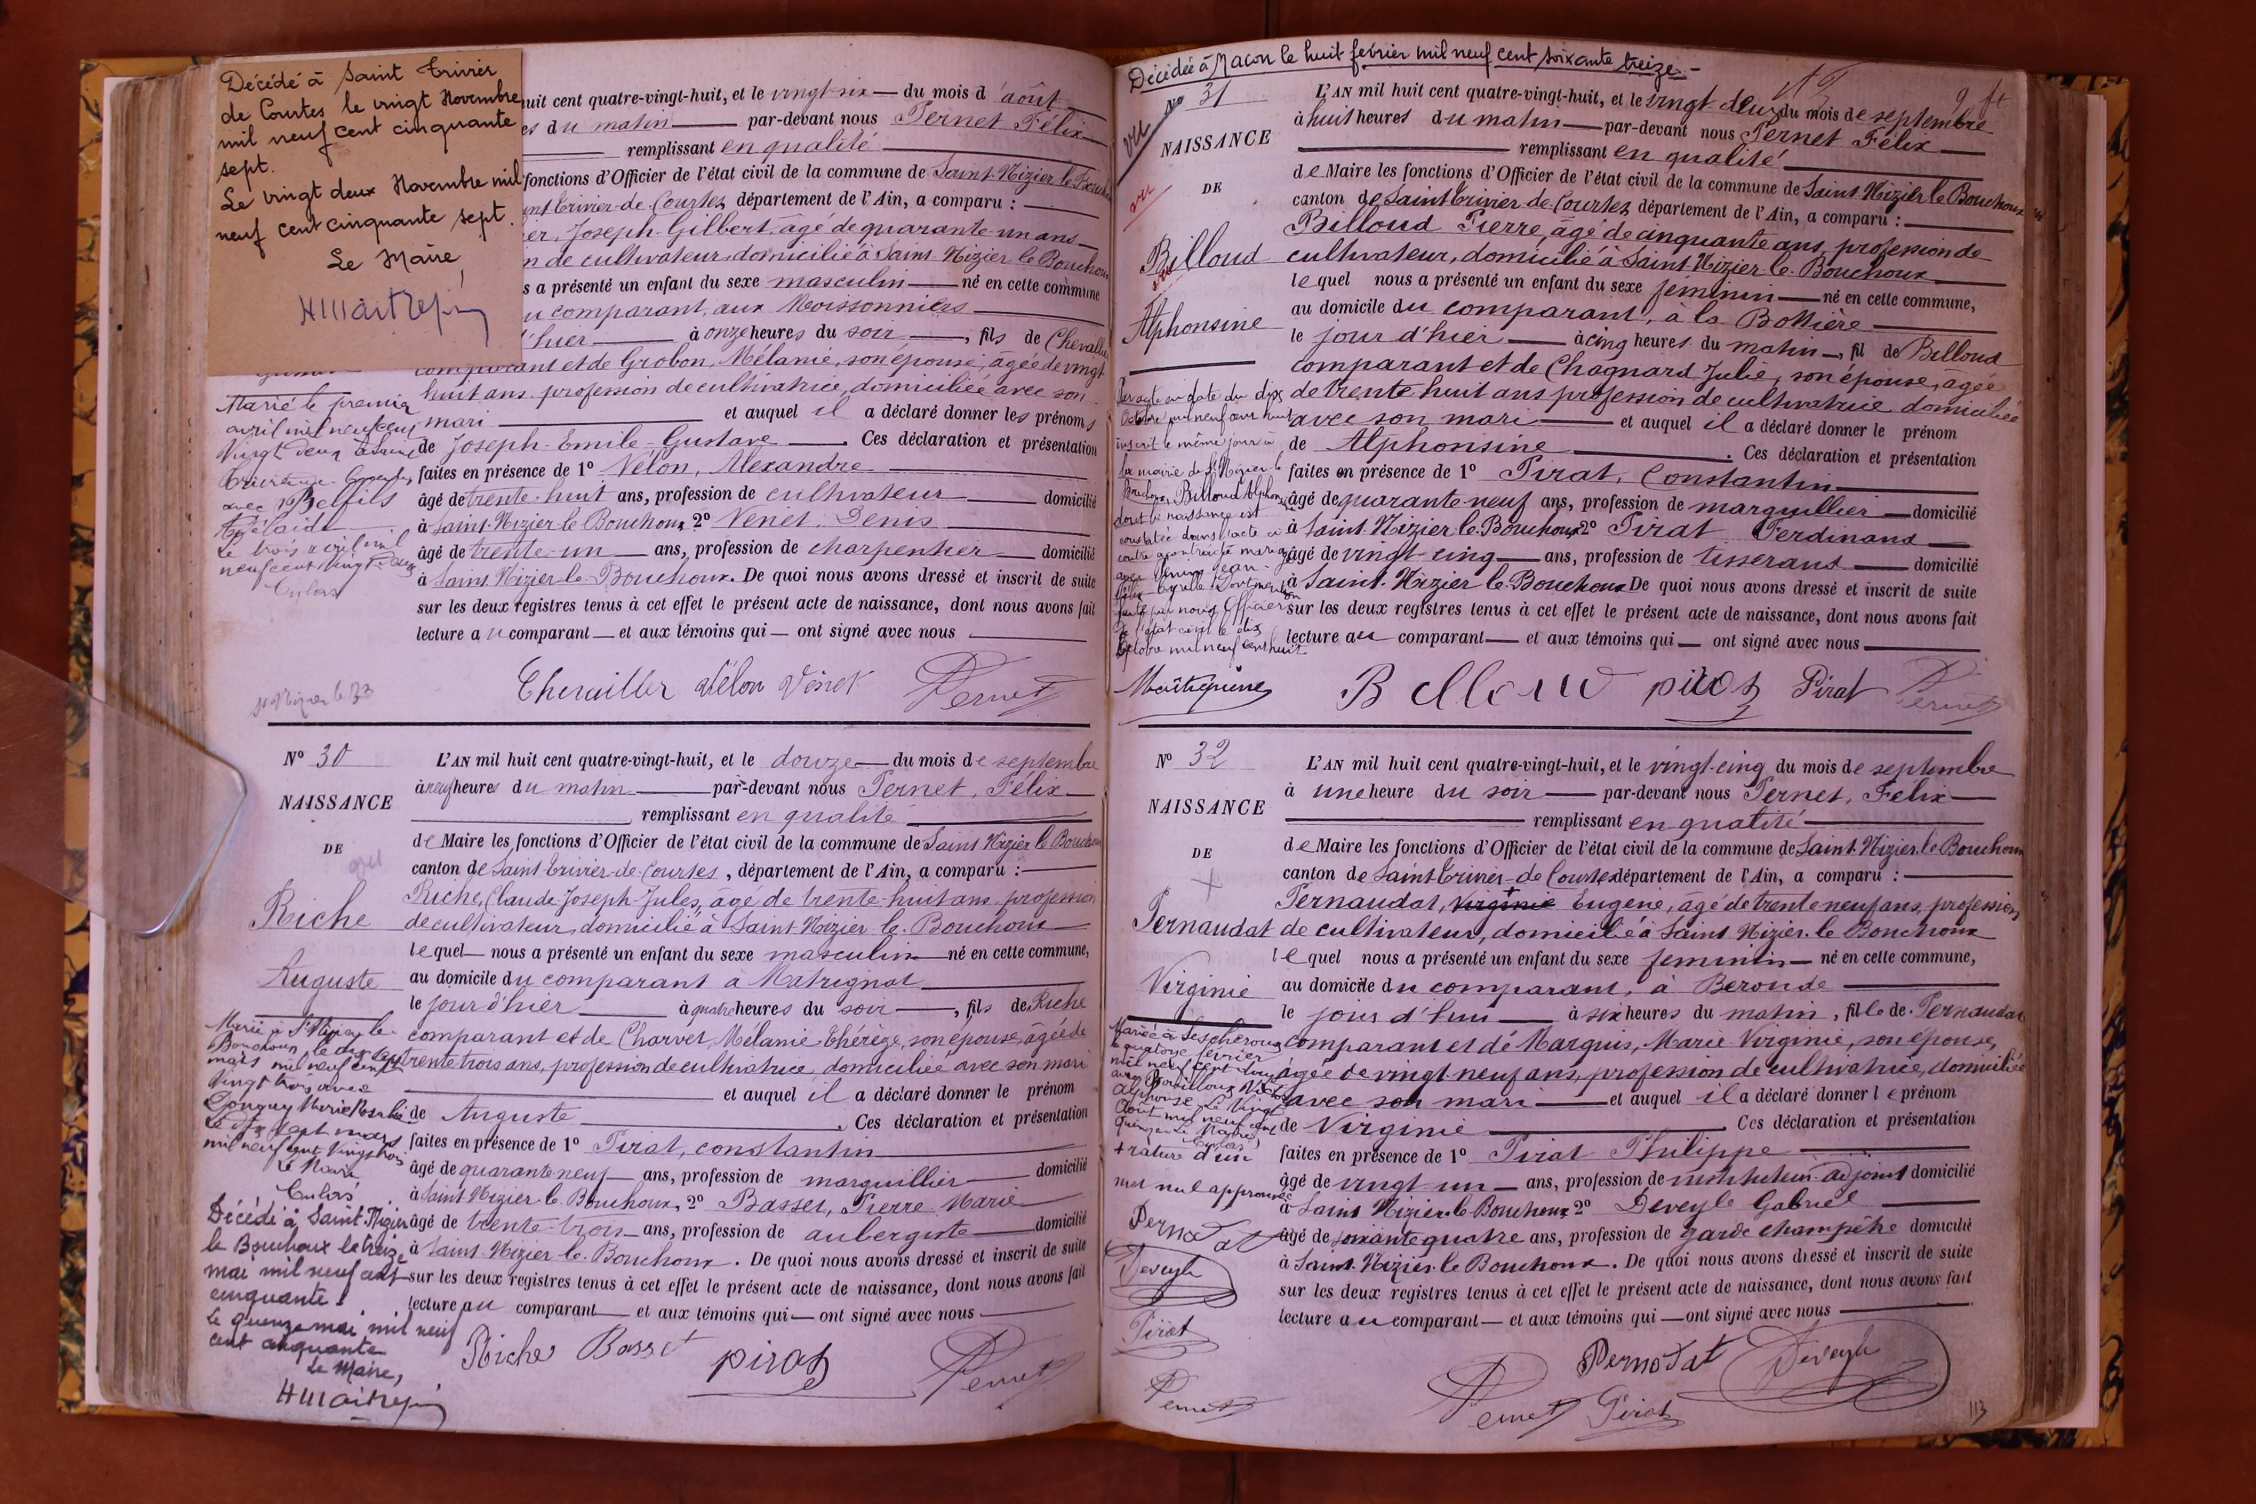 Décédé à Saint Trivier
de Courtes le vingt Novembre
mil neuf cent cinquante
sept.
Le vingt deux Novembre mil
neuf cent cinquante sept.
Le Maire,
huit cent quatre-vingt-huit, et le vingt-six du mois d'août
es du matin par-devant nous Pernet Félix
remplissant en qualité
fonctions d'Officier de l'état civil de la commune de Saint-Nizier le Bouchoux
int Trivier-de-Courtes département de l'Ain, a comparu :
er, Joseph-Gilbert, âgé de quarante-un ans
n de cultivateur, domicilié à Saint Nizier le Bouchoux
s a présenté un enfant du sexe masculin né en cette commune
u comparant, aux Moissonniers
d'hier à onze heures du soir, fils de Chevallier
comparant et de Grobon, Mélanie, son épouse, âgée de vingt
huit ans, profession de cultivatrice, domiciliée avec son
mari et auquel il a déclaré donner les prénoms
de Joseph-Emile-Gustave. Ces déclaration et présentation
faites en présence de 1º Vélon, Alexandre
âgé de trente-huit ans, profession de cultivateur domicilié
à Saint-Nizier le Bouchoux 2º Venet, Denis
âgé de trente-un ans, profession de charpentier domicilié
à Saint Nizier-le-Bouchoux. De quoi nous avons dressé et inscrit de suite
sur les deux registres tenus à cet effet le présent acte de naissance, dont nous avons fait
lecture au comparant et aux témoins qui ont signé avec nous
Marié le premier
avril mil neuf cent
vingt deux à Saint
Trivier de Courtes
avec Belfils
Adélaïde
Le trois avril mil
neuf cent vingt-deux
Chevallier Vélon Venet Pernet
Nº 30
NAISSANCE
DE
Riche
Auguste
L'AN mil huit cent quatre-vingt-huit, et le douze du mois de septembre
à neuf heures du matin par-devant nous Pernet, Félix
remplissant en qualité
de Maire les fonctions d'Officier de l'état civil de la commune de Saint Nizier le Bouchoux
canton de Saint Trivier-de-Courtes, département de l'Ain, a comparu :
Riche, Claude Joseph-Jules, âgé de trente-huit ans, profession
de cultivateur, domicilié à Saint Nizier le Bouchoux
lequel nous a présenté un enfant du sexe masculin né en cette commune,
au domicile du comparant à Matrignat
le jour d'hier à quatre heures du soir, fils de Riche
comparant et de Charvet, Mélanie Thérèze, son épouse, âgée de
trente trois ans, profession de cultivatrice, domiciliée avec son mari
et auquel il a déclaré donner le prénom
de Auguste. Ces déclaration et présentation
faites en présence de 1º Pirat, constantin
âgé de quarante-neuf ans, profession de marguillier domicilié
à Saint Nizier-le-Bouchoux, 2º Basset, Pierre Marie
âgé de trente-trois ans, profession de aubergiste domicilié
à Saint-Nizier le-Bouchoux. De quoi nous avons dressé et inscrit de suite
sur les deux registres tenus à cet effet le présent acte de naissance, dont nous avons fait
lecture au comparant et aux témoins qui ont signé avec nous
Marié à St Nizier le
Bouchoux le dix sept
mars mil neuf cent
vingt trois avec
Marie Rosalie
Le dix sept mars
mil neuf cent vingt trois
Le Maire
Décédé à Saint Nizier
le Bouchoux le treize
mai mil neuf cent
cinquante.
Le quinze mai mil neuf
cent cinquante
Le Maire,
Riche Basset pirat Pernet
Décédée à Macon le huit fevrier mil neuf cent soixante treize.
Nº 31
vu
NAISSANCE
vu
DE
Billoud
vu
Alphonsine
L'AN mil huit cent quatre-vingt-huit, et le vingt-deux du mois de septembre
à huit heures du matin par-devant nous Pernet Félix
remplissant en qualité
de Maire les fonctions d'Officier de l'état civil de la commune de Saint-Nizier le Bouchoux
canton de Saint Trivier de Courtes département de l'Ain, a comparu :
Billoud Pierre, âgé de cinquante ans, profession de
cultivateur, domicilié à Saint Nizier le Bouchoux
lequel nous a présenté un enfant du sexe feminin né en cette commune,
au domicile du comparant, à la Bottière
le jour d'hier à cinq heures du matin, fil de Billoud
comparant et de Chagnard Julie, son épouse, âgée
de trente huit ans profession de cultivatrice domiciliée
avec son mari et auquel il a déclaré donner le prénom
de Alphonsine. Ces déclaration et présentation
faites en présence de 1º Pirat, Constantin
âgé de quarante neuf ans, profession de marguillier domicilié
à Saint-Nizier-le-Bouchoux 2º Pirat Ferdinand
âgé de vingt-cinq ans, profession de tisserand domicilié
à Saint-Nizier le-Bouchoux De quoi nous avons dressé et inscrit de suite
sur les deux registres tenus à cet effet le présent acte de naissance, dont nous avons fait
lecture au comparant et aux témoins qui ont signé avec nous
Par acte en date du dix
Octobre mil neuf cent huit
inscrit le même jour à
la mairie de St Nizier le
Bouchoux Billoud Alphonsine
dont la naissance est
constatée dans l'acte ci
contre a contracté mariage
avec
faite par nous Officier
de l'état civil le dix
Octobre mil neuf cent huit
Billoud pirat Pirat Pernet
Nº 32
NAISSANCE
DE
Pernaudat
Virginie
L'AN mil huit cent quatre-vingt-huit, et le vingt-cinq du mois de septembre
à une heure du soir par-devant nous Pernet, Félix
remplissant en qualité
de Maire les fonctions d'Officier de l'état civil de la commune de Saint-Nizier-le Bouchoux
canton de Saint Trivier-de Courtes département de l'Ain, a comparu :
Pernaudat, Virginie Eugène, âgé de trente neuf ans, profession
de cultivateur, domicilié à Saint Nizier-le Bouchoux
lequel nous a présenté un enfant du sexe feminin né en cette commune,
au domicile du comparant, à Beronde
le jour d'hui à six heures du matin, fille de Pernaudat
comparant et de Marguis, Marie Virginie, son épouse,
âgée de vingt neuf ans, profession de cultivatrice, domiciliée
avec son mari et auquel il a déclaré donner le prénom
de Virginie. Ces déclaration et présentation
faites en présence de 1º Pirat Philippe
âgé de vingt un ans, profession de instituteur-adjoint domicilié
à Saint Nizier-le Bouchoux 2º Deveyle Gabriel
âgé de soixante quatre ans, profession de garde champêtre domicilié
à Saint-Nizier-le Bouchoux. De quoi nous avons dressé et inscrit de suite
sur les deux registres tenus à cet effet le présent acte de naissance, dont nous avons fait
lecture au comparant et aux témoins qui ont signé avec nous
Mariée à Lescheroux
le quatorze février
mil neuf cent
avec
Alphonse Le vingt
Août mil neuf cent
quinze Le Maire,
+ rature d'un
mot nul approuvée
Pernodat
Deveyle
Pirat
Pernet
Pernodat Deveyle
Pernet Pirat
113